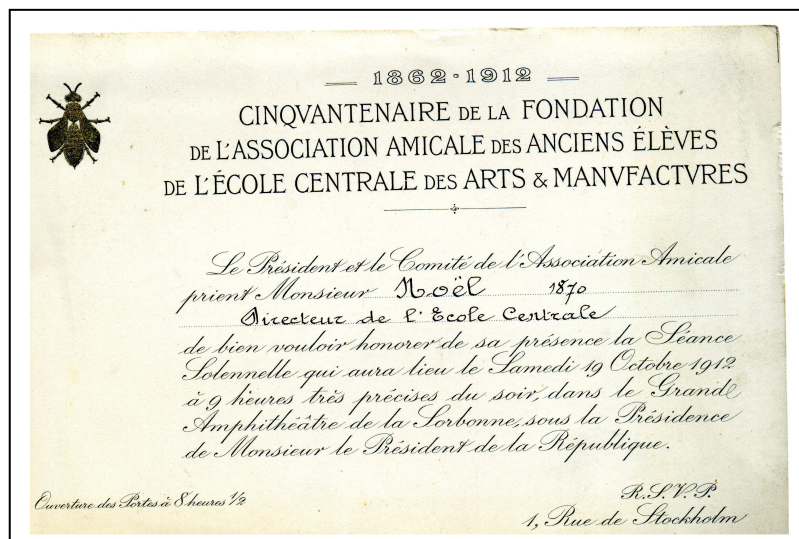 1862·1912
CINQVANTENAIRE DE LA FONDATION
DE L'ASSOCIATION AMICALE DES ANCIENS ÉLÈVES
DE L'ÉCOLE CENTRALE DES ARTS & MANVFACTVRES
Le Président et le Comité de l'Association Amicale
prient Monsieur Noël 1870
Directeur de l'Ecole Centrale
de bien vouloir honorer de sa présence la Séance
Solennelle qui aura lieu le Samedi 19 Octobre 1912
à 9 heures très précises du soir, dans le Grand
Amphithéâtre de la Sorbonne, sous la Présidence
de Monsieur le Président de la République.
Ouverture des Portes à 8 heures 1/2
R.S.V.P.
1, Rue de Stockholm